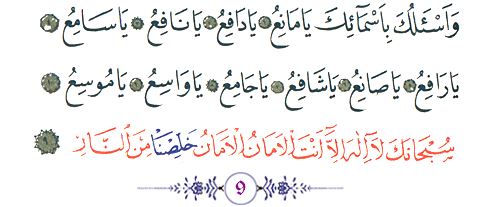 وَاَسْئَلُكَ بِاَسْمَآئِكَ يَامَانِعُ يَادَافِعُ يَانَافِعُ يَاسَامِعُ
يَارَافِعُ يَاصَانِعُ يَاشَافِعُ يَاجَامِعُ يَاوَاسِعُ يَامُوسِعُ
سُبْحَانَكَ لاَۤ اِلٰهَ اِلاَّۤ اَنْتَ اْلاَمَانُ اْلاَمَانُ خَلِّصْنَا مِنَ النَّارِ
9